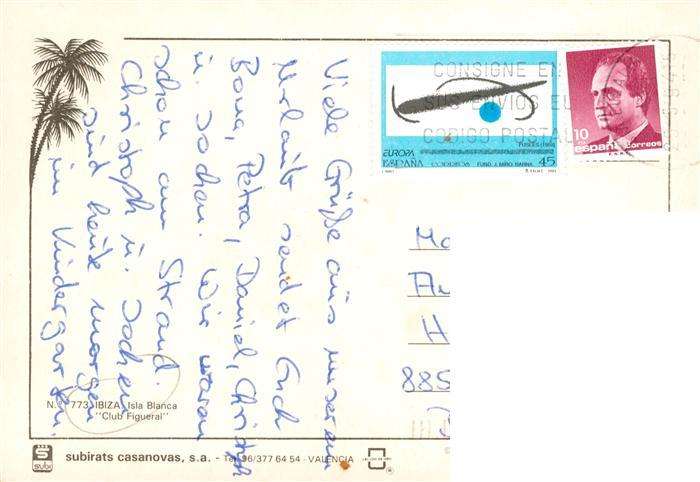 Viele Grüße aus unserem
Urlaub sendet Euch
Petra, Daniel, Christoph
u. Jochen. Wir waren
schon am Strand.
Christoph u. Jochen
sind heute morgen
im Kindergarten.
CONSIGNE EN
SUS ENVIOS EL
CODIGO POSTAL
FUSEES (1959)
EUROPA
ESPAÑA
CORREOS
FUND. J. MIRO. MARINA
45
10
españa correos
H
885
N.º 773 - IBIZA, Isla Blanca
"Club Figueral"
subi
subirats casanovas, s.a. - Tel. 96/377 64 54 - VALENCIA